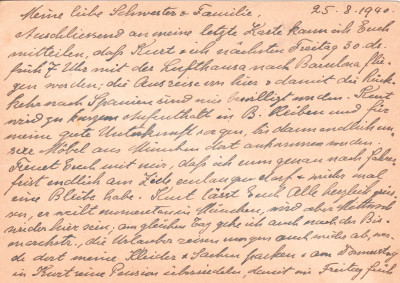 Meine liebe Schwester & Familie, 25.-8.-1940.
Anschliessend an meine letzte Karte kann ich Euch
mitteilen, daß Kurt & ich nächsten Freitag 30. ds.
früh 7 Uhr mit der Lufthansa nach Barcelona flie-
gen werden; die Ausreise von hier & damit die Rück-
kehr nach Spanien sind uns bewilligt worden. Kurt
wird zu kurzem Aufenthalt in B. bleiben und für
meine gute Unterkunft sorgen, bis dann endlich un-
sere Möbel aus München dort ankommen werden.
Freuet Euch mit mir, daß ich nun genau nach Jahres-
frist endlich am Ziele anlangen darf & wieder mal
eine Bleibe habe. Kurt lässt Euch Alle herzlich grüs-
sen, er weilt momentan in München, wird aber Mittwoch
wieder hier sein, am gleichen Tag gehe ich auch nach der
die Urlauber reisen morgen auch wieder ab, wer-
de dort meine Kleider & Sachen packen & am Donnerstag
in Kurts Pension übersiedeln, damit wir Freitag früh